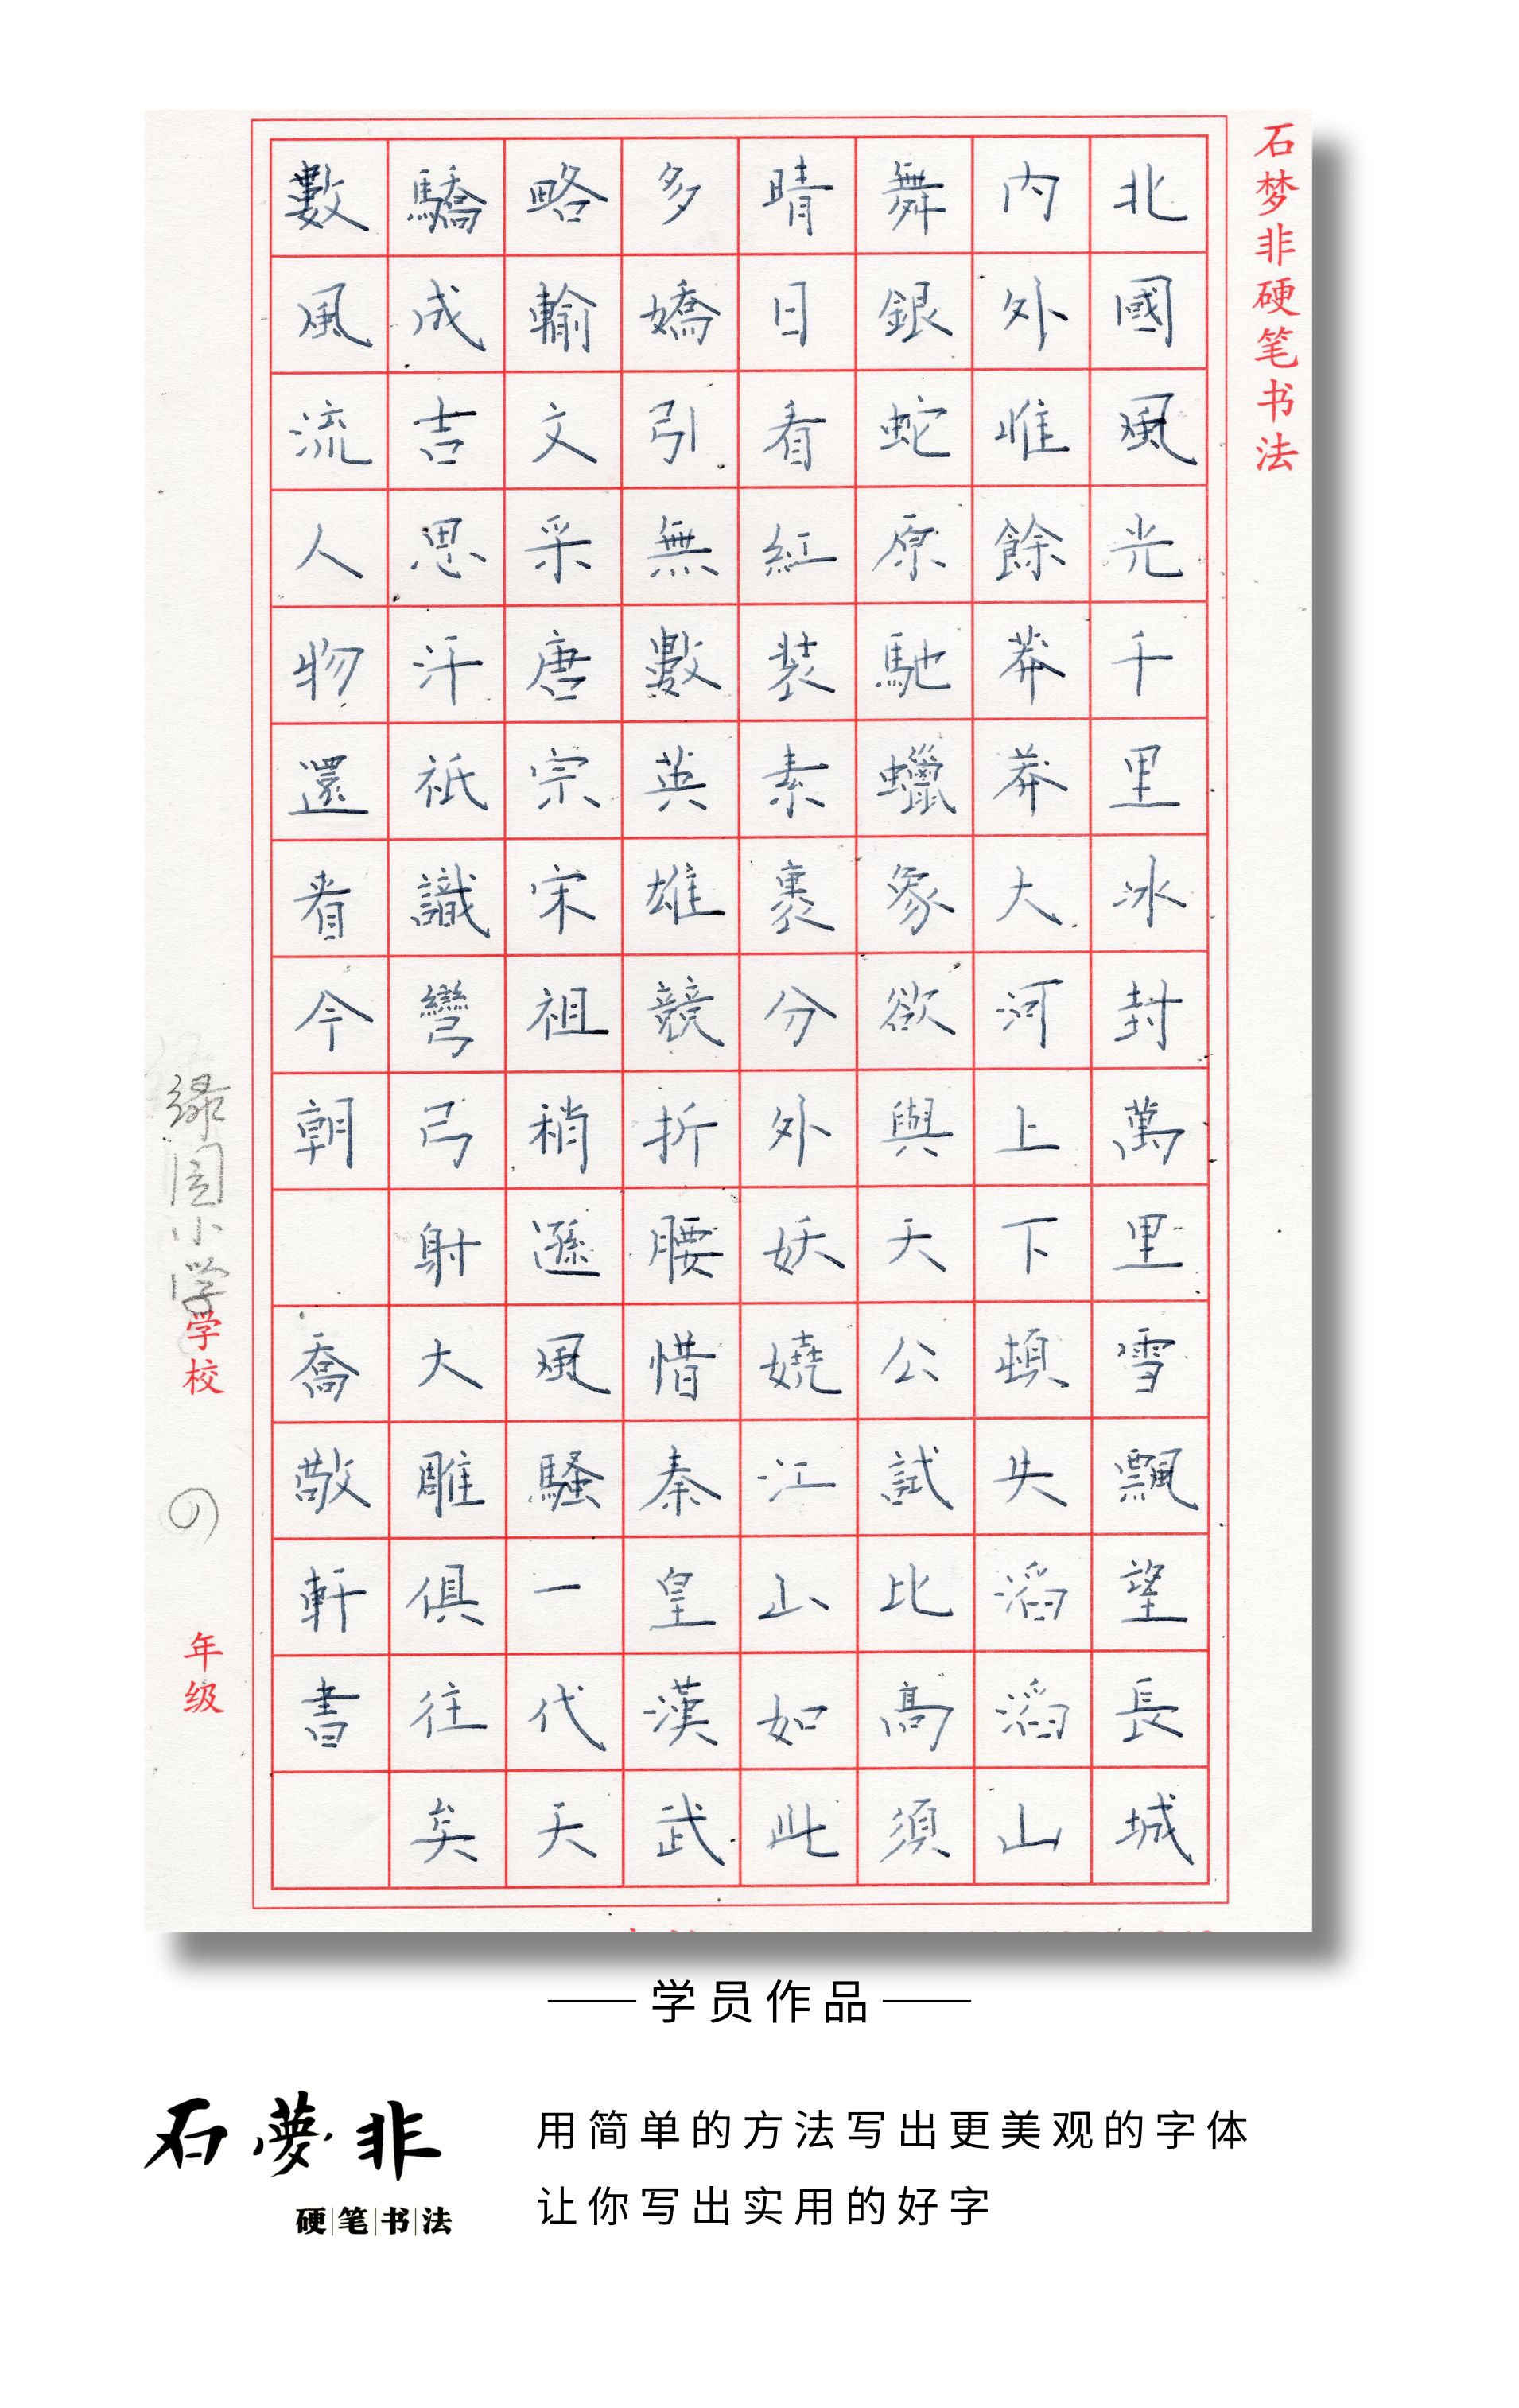 石梦非硬笔书法
北國風光千里冰封萬里雪飄望長城
内外惟餘莽莽大河上下頓失滔滔山
舞銀蛇原馳蠟象欲與天公試比高須
晴日看紅装素裹分外妖嬈江山如此
多嬌引無數英雄競折腰惜秦皇漢武
略輸文采唐宗宋祖稍遜風騷一代天
驕成吉思汗衹識彎弓射大雕俱往矣
數風流人物還看今朝 喬敬軒書
绿园小学学校
年级
学员作品
石夢非
硬笔书法
用简单的方法写出更美观的字体
让你写出实用的好字